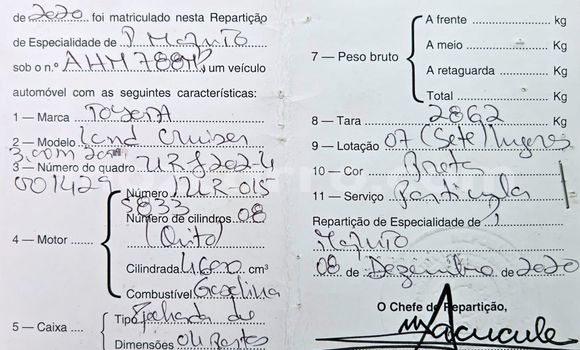 de 2020 foi matriculado nesta Repartição
de Especialidade de P. Maputo
sob o n.º AHM 788 MP, um veículo
automóvel com as seguintes características:
1 — Marca TOYOTA
2 — Modelo Land Cruiser
3 — Número do quadro URJ202-4
001429
4 — Motor
Número 1UR-015
5833
Número de cilindros 08
(Oito)
Cilindrada 4600 cm³
Combustível Gasolina
5 — Caixa
Tipo Fechada de
Dimensões 04 Portas
7 — Peso bruto
A frente Kg
A meio Kg
A retaguarda Kg
Total Kg
8 — Tara 2862 Kg
9 — Lotação 07 (Sete) lugares
10 — Cor Preta
11 — Serviço Particular
Repartição de Especialidade de
Maputo
08 de Dezembro de 2020
O Chefe de Repartição,